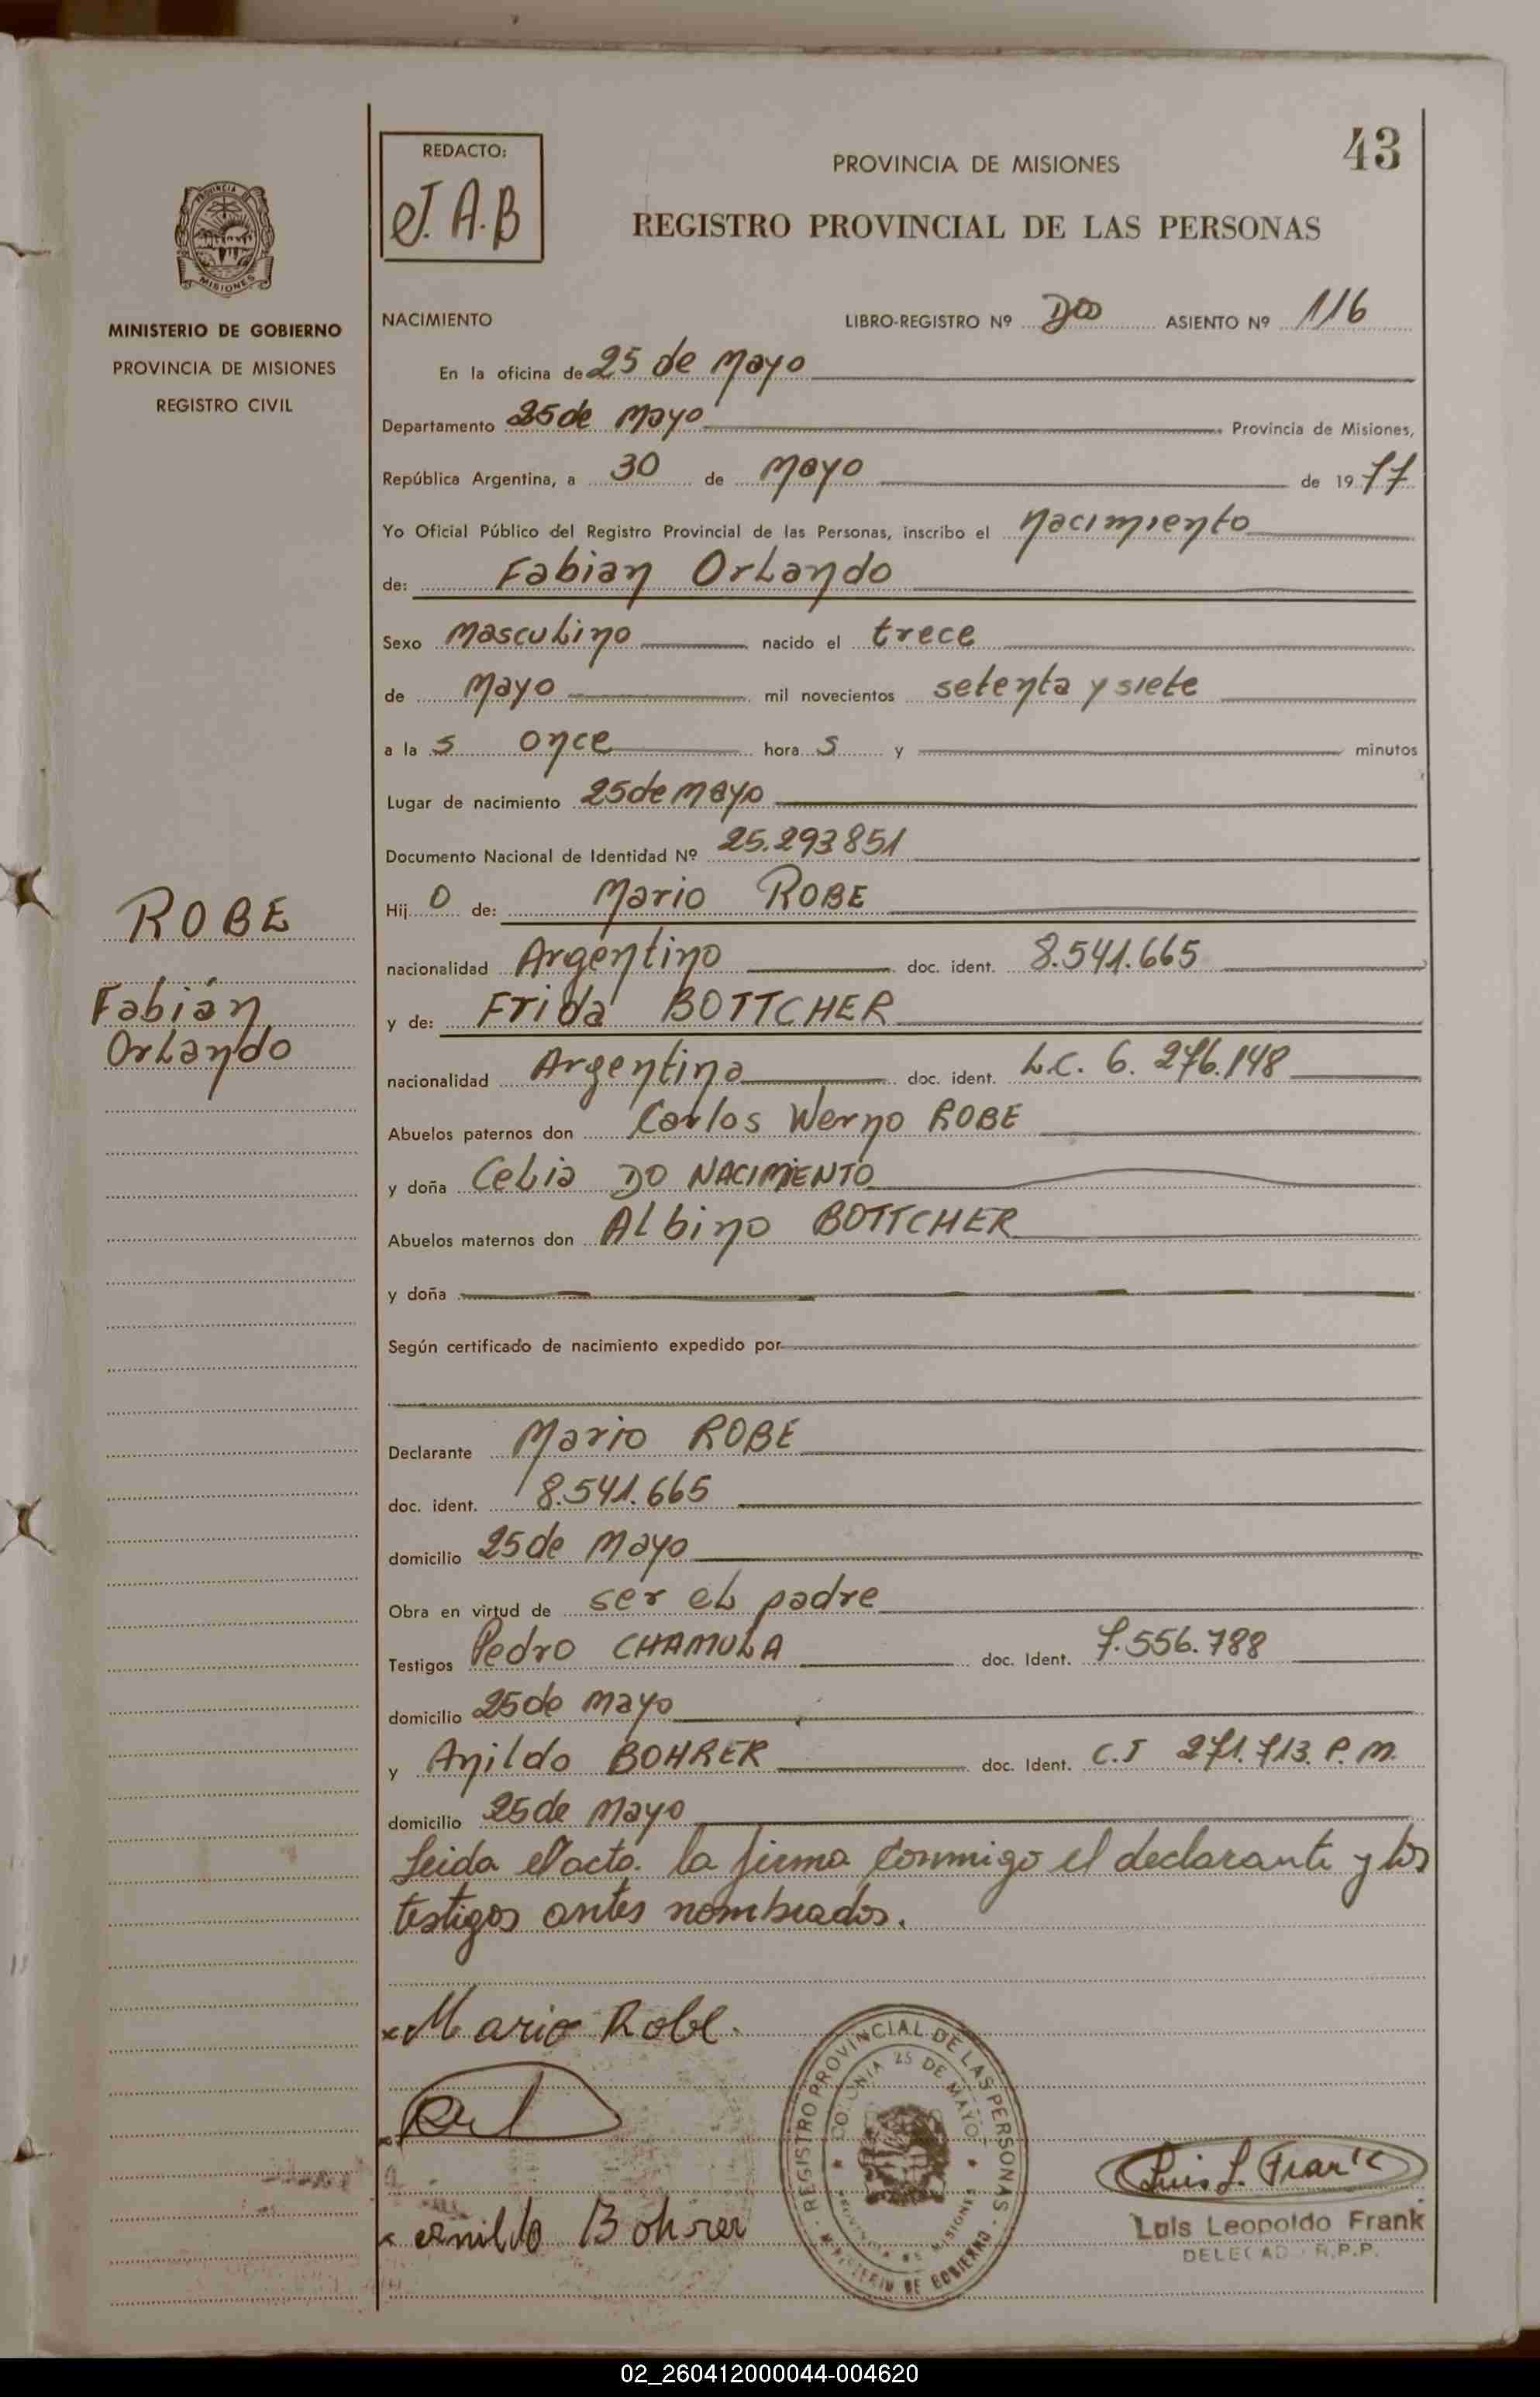 43
REDACTO:
J. A. B
PROVINCIA DE MISIONES
REGISTRO PROVINCIAL DE LAS PERSONAS
PROVINCIA DE
MISIONES
MINISTERIO DE GOBIERNO
PROVINCIA DE MISIONES
REGISTRO CIVIL
NACIMIENTO LIBRO-REGISTRO Nº Dos ASIENTO Nº 116
En la oficina de 25 de Mayo
Departamento 25 de Mayo Provincia de Misiones,
República Argentina, a 30 de Mayo de 1977
Yo Oficial Público del Registro Provincial de las Personas, inscribo el nacimiento
de: Fabian Orlando
Sexo Masculino nacido el trece
de Mayo mil novecientos setenta y siete
a la s once hora s y minutos
Lugar de nacimiento 25 de mayo
Documento Nacional de Identidad Nº 25.293851
Hij o de: Mario ROBE
ROBE
nacionalidad Argentino doc. ident. 8.541.665
Fabián
y de: Frida BOTTCHER
Orlando
nacionalidad Argentina doc. ident. L.C. 6.276.148
Abuelos paternos don Carlos Werno ROBE
y doña Celia DO NACIMIENTO
Abuelos maternos don Albino BOTTCHER
y doña
Según certificado de nacimiento expedido por
Declarante Mario ROBE
doc. ident. 8.541.665
domicilio 25 de Mayo
Obra en virtud de ser el padre
Testigos Pedro CHAMULA doc. Ident. 7.556.788
domicilio 25 de mayo
y Anildo BOHRER doc. Ident. C.I 271.713. P.M.
domicilio 25 de Mayo
Leida el acta. la firma conmigo el declarante y los
testigos antes nombrados.
x Mario Robe.
REGISTRO PROVINCIAL DE LAS PERSONAS
COLONIA 25 DE MAYO
PROVINCIA DE MISIONES
MINISTERIO DE GOBIERNO
Luis L. Frank
x Anildo Bohrer
Luis Leopoldo Frank
DELEGADO R.P.P.
02_260412000044-004620